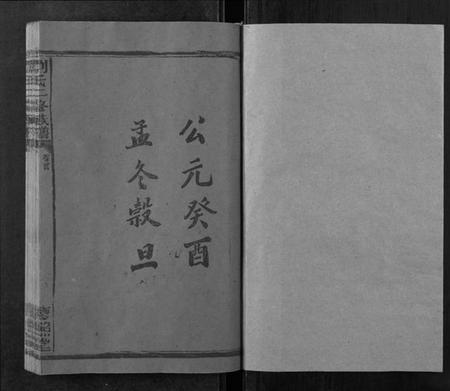 公元癸酉
孟冬穀旦
劉氏二修族譜
卷首